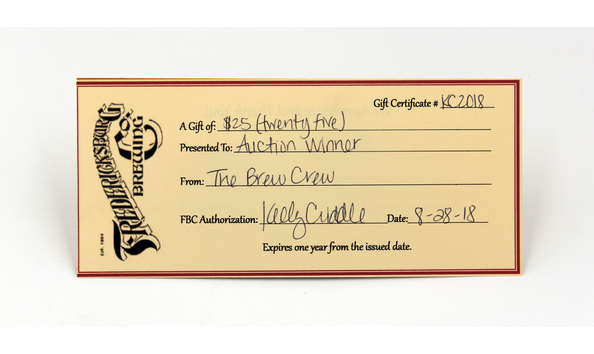 FREDERICKSBURG
BREWING CO.
EST. 1994
Gift Certificate # KC2018
A Gift of: $25 (twenty five)
Presented To: Auction Winner
From: The Brew Crew
FBC Authorization: Kelly Criddle Date: 8-28-18
Expires one year from the issued date.